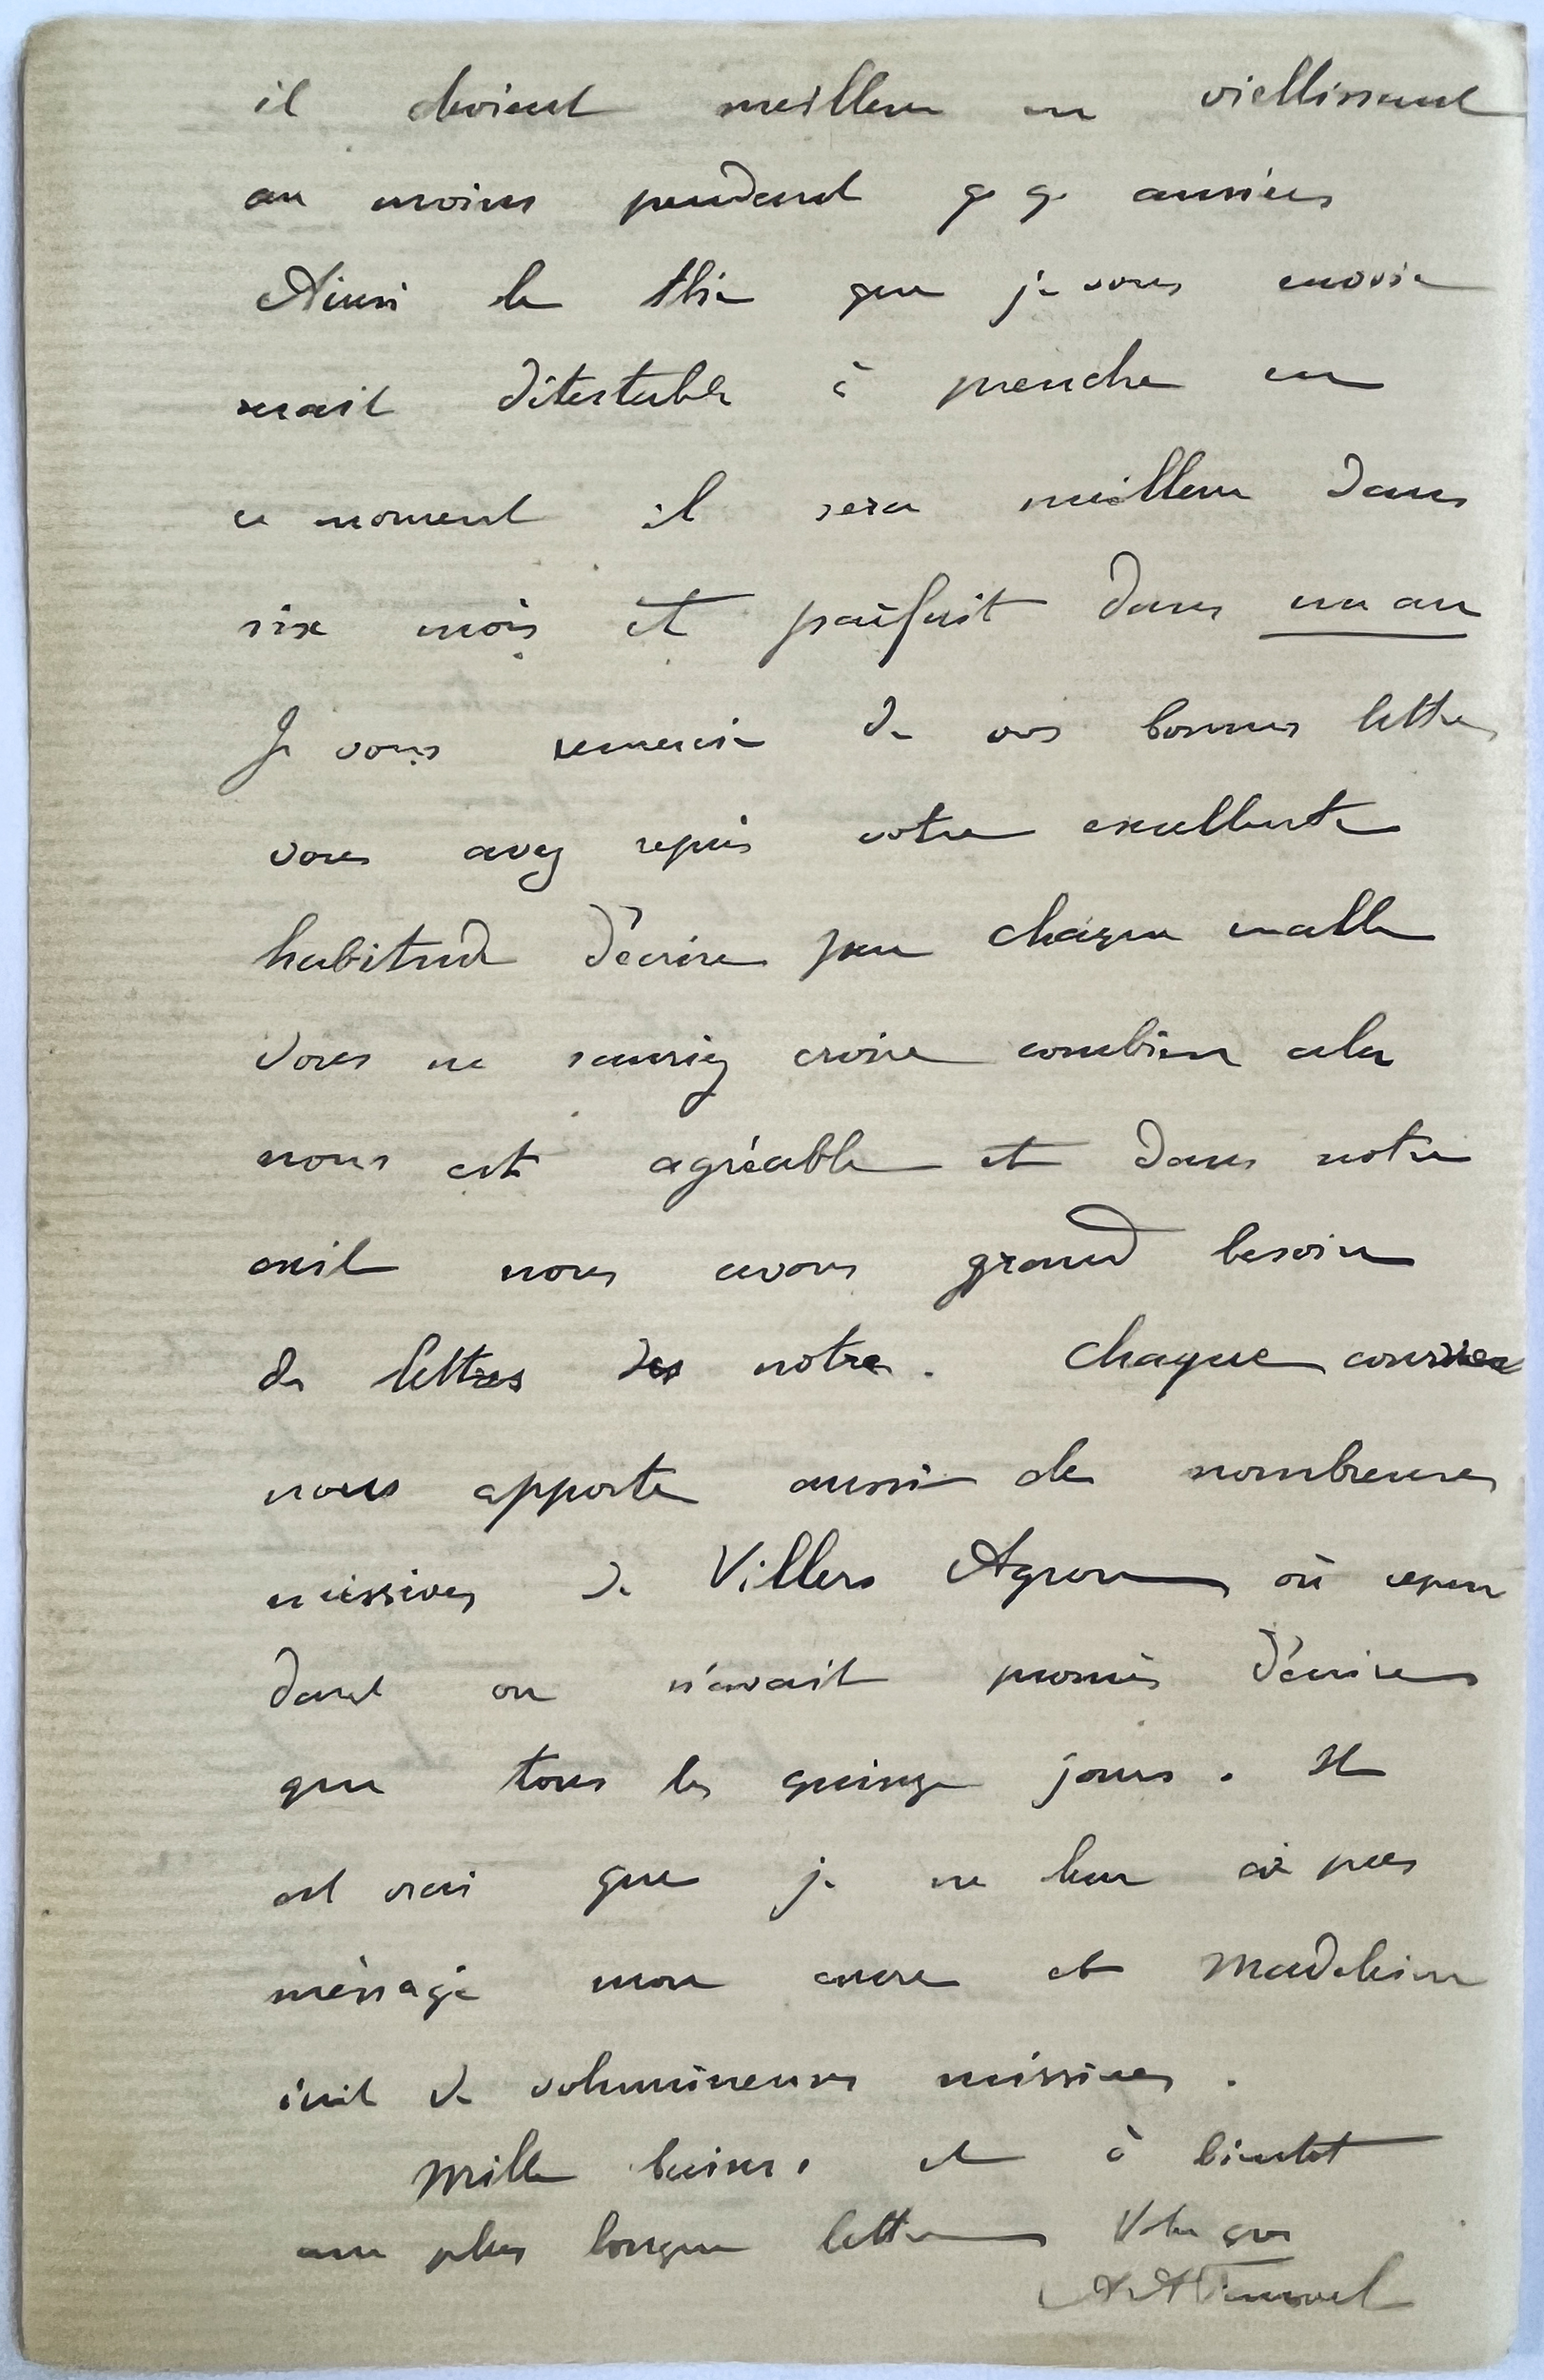 il devient meilleur en viellissant
au moins pendant qq années
Ainsi le thé que je vous envoie
serait détestable à prendre en
ce moment il sera meilleur dans
six mois et parfait dans un an
Je vous remercie de vos bonnes lettres
vous avez repris votre excellente
habitude d'écrire par chaque malle
Vous ne sauriez croire combien cela
nous est agréable et dans notre
exil nous avons grand besoin
de lettres des notres. Chaque courrier
nous apporte aussi de nombreuses
missives de Villers Agron où cepen
dant on n'avait promis d'écrire
que tous les quinze jours. Il
est vrai que je ne leur ai pas
ménagé mon encre et Madeleine
écrit de volumineuses missives.
Mille baisers et à bientot
une plus longue lettre Votre